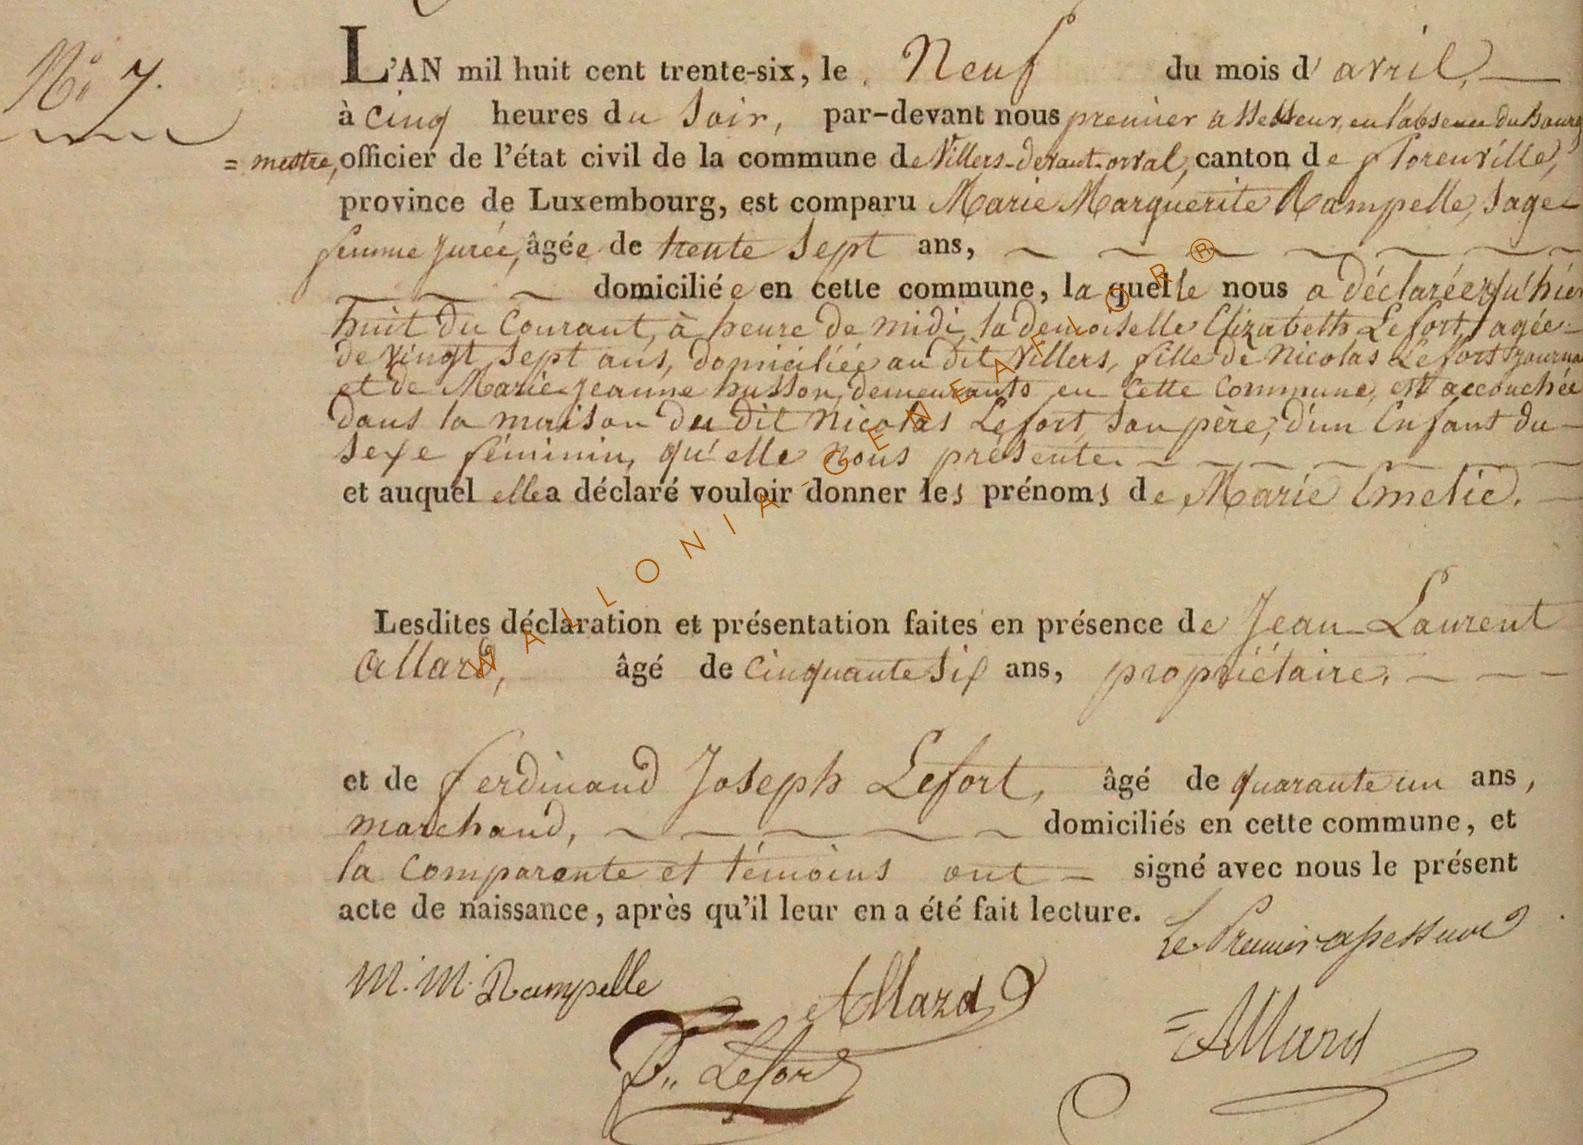 N.º 7.
L'AN mil huit cent trente-six, le Neuf du mois d'avril,
à cinq heures du Soir, par-devant nous premier assesseur, en l'absence du Bourg
= mestre, officier de l'état civil de la commune de Villers-devant-orval, canton de florenville,
province de Luxembourg, est comparu Marie Marguerite Rampelle, Sage
femme Jurée, âgée de trente Sept ans,
domiciliée en cette commune, la quelle nous a déclarée qu'hier
huit du Courant, à heure de midi, la demoiselle Elizabeth Lefort, agée
de vingt sept ans, domiciliée au dit Villers, fille de Nicolas Lefort
et de Marie jeanne husson, demeurants en cette Commune, est accouchée
dans la maison du dit Nicolas Lefort, Son père, d'un Enfant du
Sexe féminin, qu'elle Nous présente.
et auquel elle a déclaré vouloir donner les prénoms de Marie Emelie.
Lesdites déclaration et présentation faites en présence de Jean Laurent
Allard, âgé de Cinquante Six ans, propriétaire.
et de ferdinand Joseph Lefort, âgé de quarante un ans,
marchand, domiciliés en cette commune, et
la Comparante et témoins ont signé avec nous le présent
acte de naissance, après qu'il leur en a été fait lecture.
Le Premier assesseur
M. M. Rampelle
Allard
Lefort
Allard
WALLONIA-GENEAFLOR®